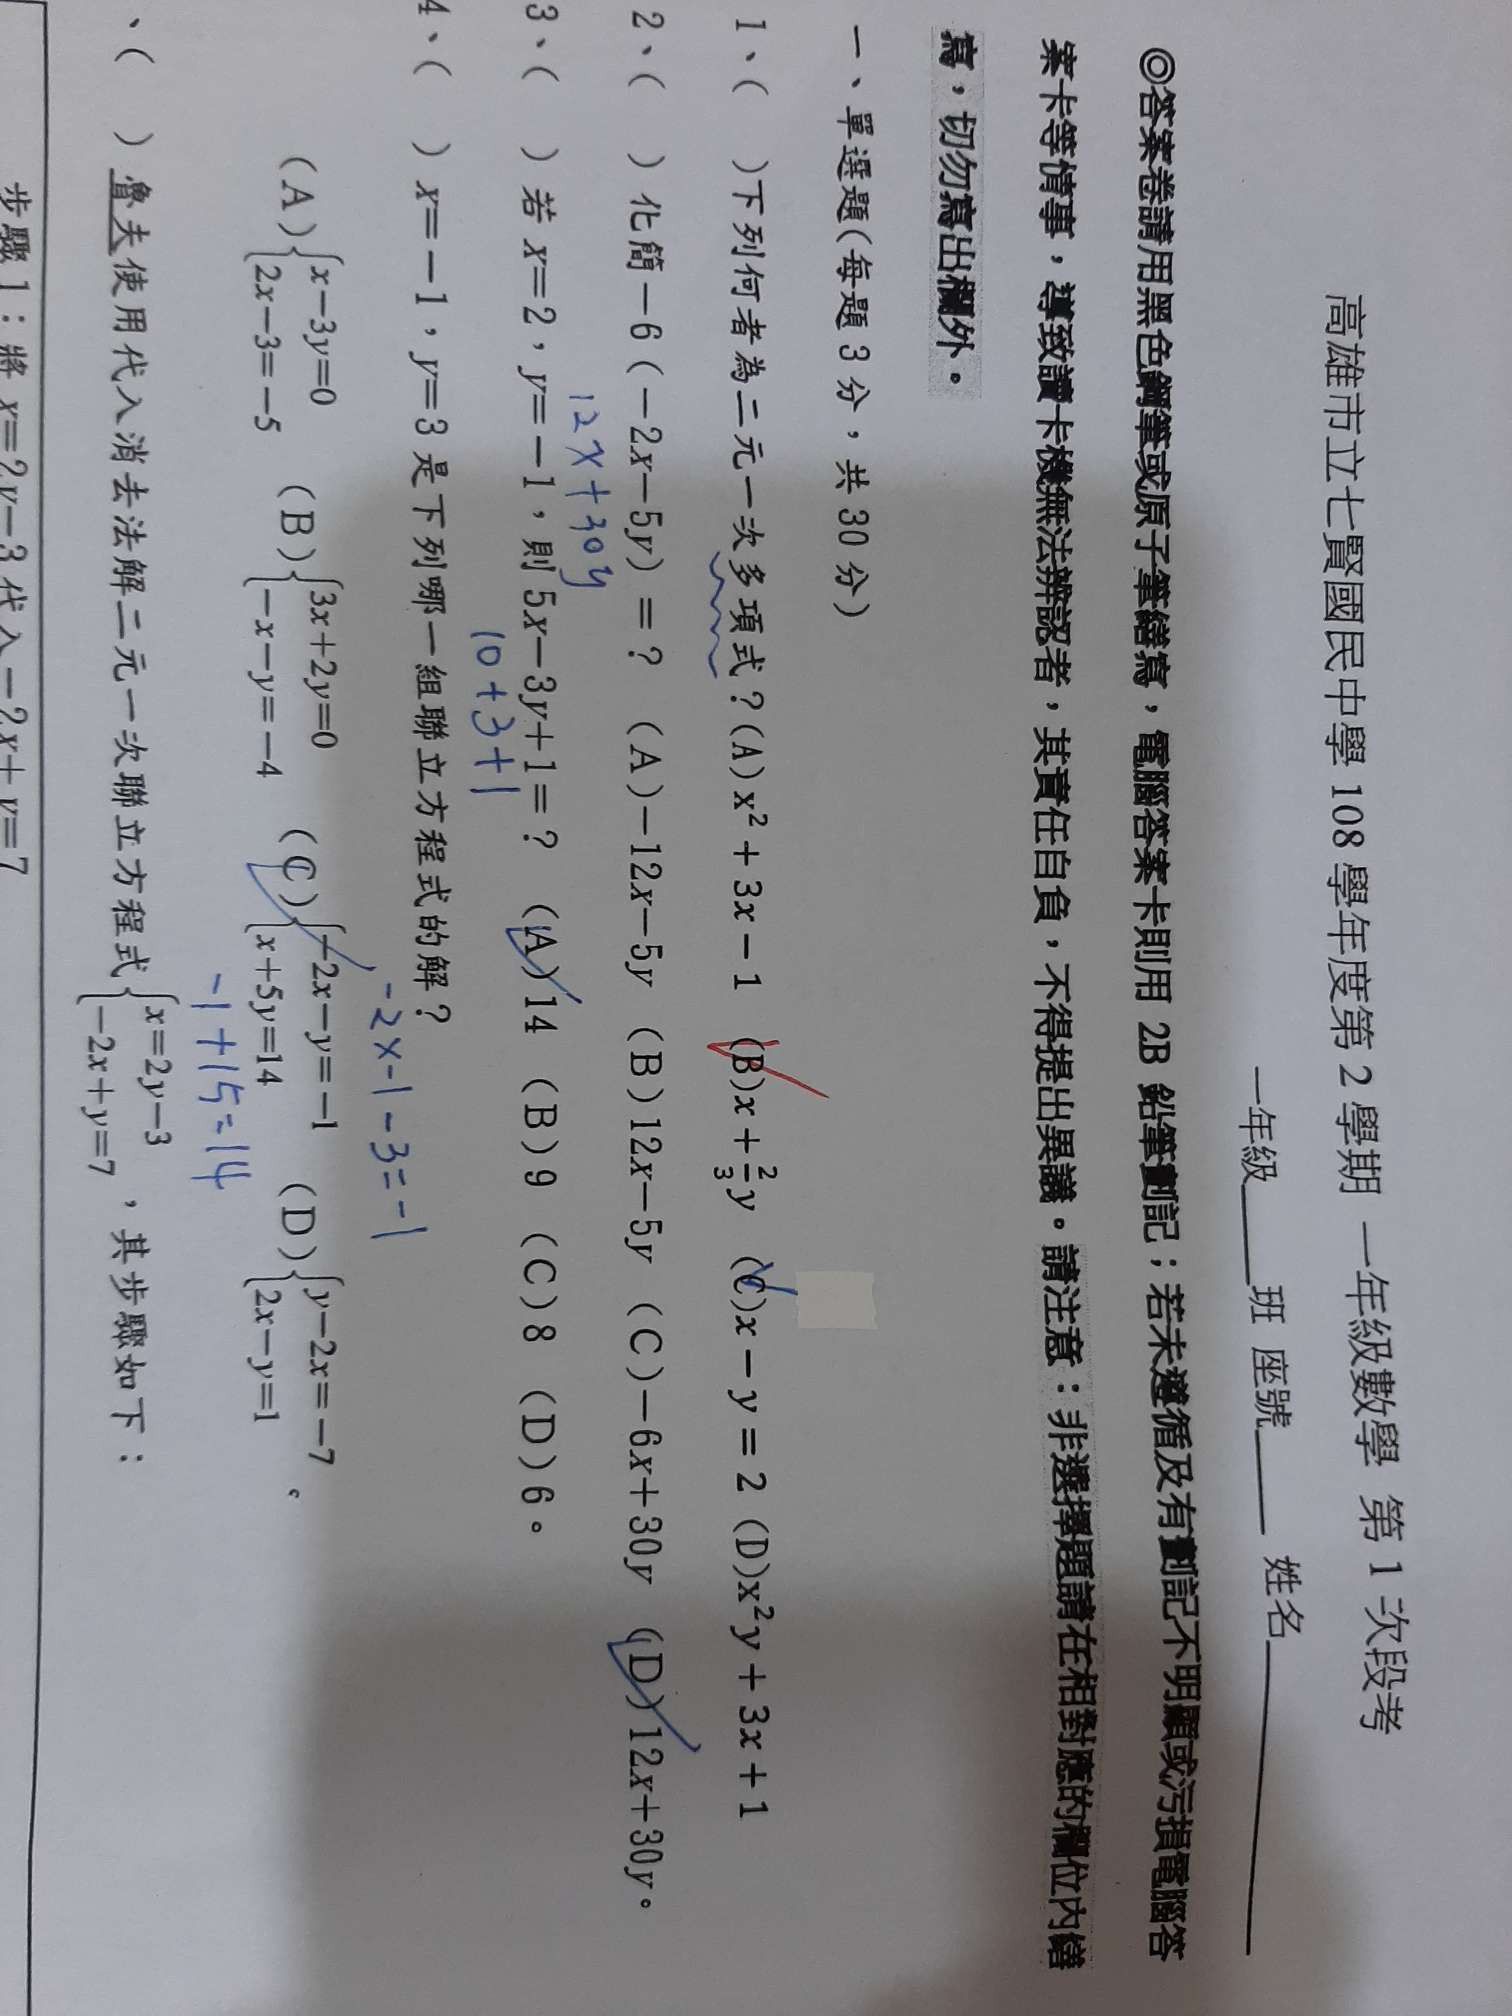 高雄市立七賢國民中學 108 學年度第 2 學期 一年級數學 第 1 次段考
一年級____班 座號____ 姓名________
◎答案卷請用黑色鋼筆或原子筆繕寫，電腦答案卡則用 2B 鉛筆劃記；若未遵循及有劃記不明顯或污損電腦答
案卡等情事，導致讀卡機無法辨認者，其責任自負，不得提出異議。請注意：非選擇題請在相對應的欄位內繕
寫，切勿寫出欄外。
一、單選題(每題 3 分，共 30 分)
1、( )下列何者為二元一次多項式？(A) x² + 3x − 1 (B) x + 2/3 y (C) x − y = 2 (D) x²y + 3x + 1
2、( ) 化簡−6 (−2x−5y) =？ (A)−12x−5y (B)12x−5y (C)−6x+30y (D)12x+30y。
12x+30y
3、( ) 若 x=2，y=−1，則 5x−3y+1=？ (A)14 (B)9 (C)8 (D)6。
10+3+1
4、( ) x=−1，y=3 是下列哪一組聯立方程式的解？
-2x-1-3=-1
(A){x−3y=0 (B){3x+2y=0 (C){−2x−y=−1 (D){y−2x=−7
2x−3=−5 −x−y=−4 x+5y=14 2x−y=1 。
-1+15=14
、( ) 魯夫使用代入消去法解二元一次聯立方程式{x=2y−3
−2x+y=7 ，其步驟如下：
步驟 1：將 x=2y−3 代入−2x+y=7